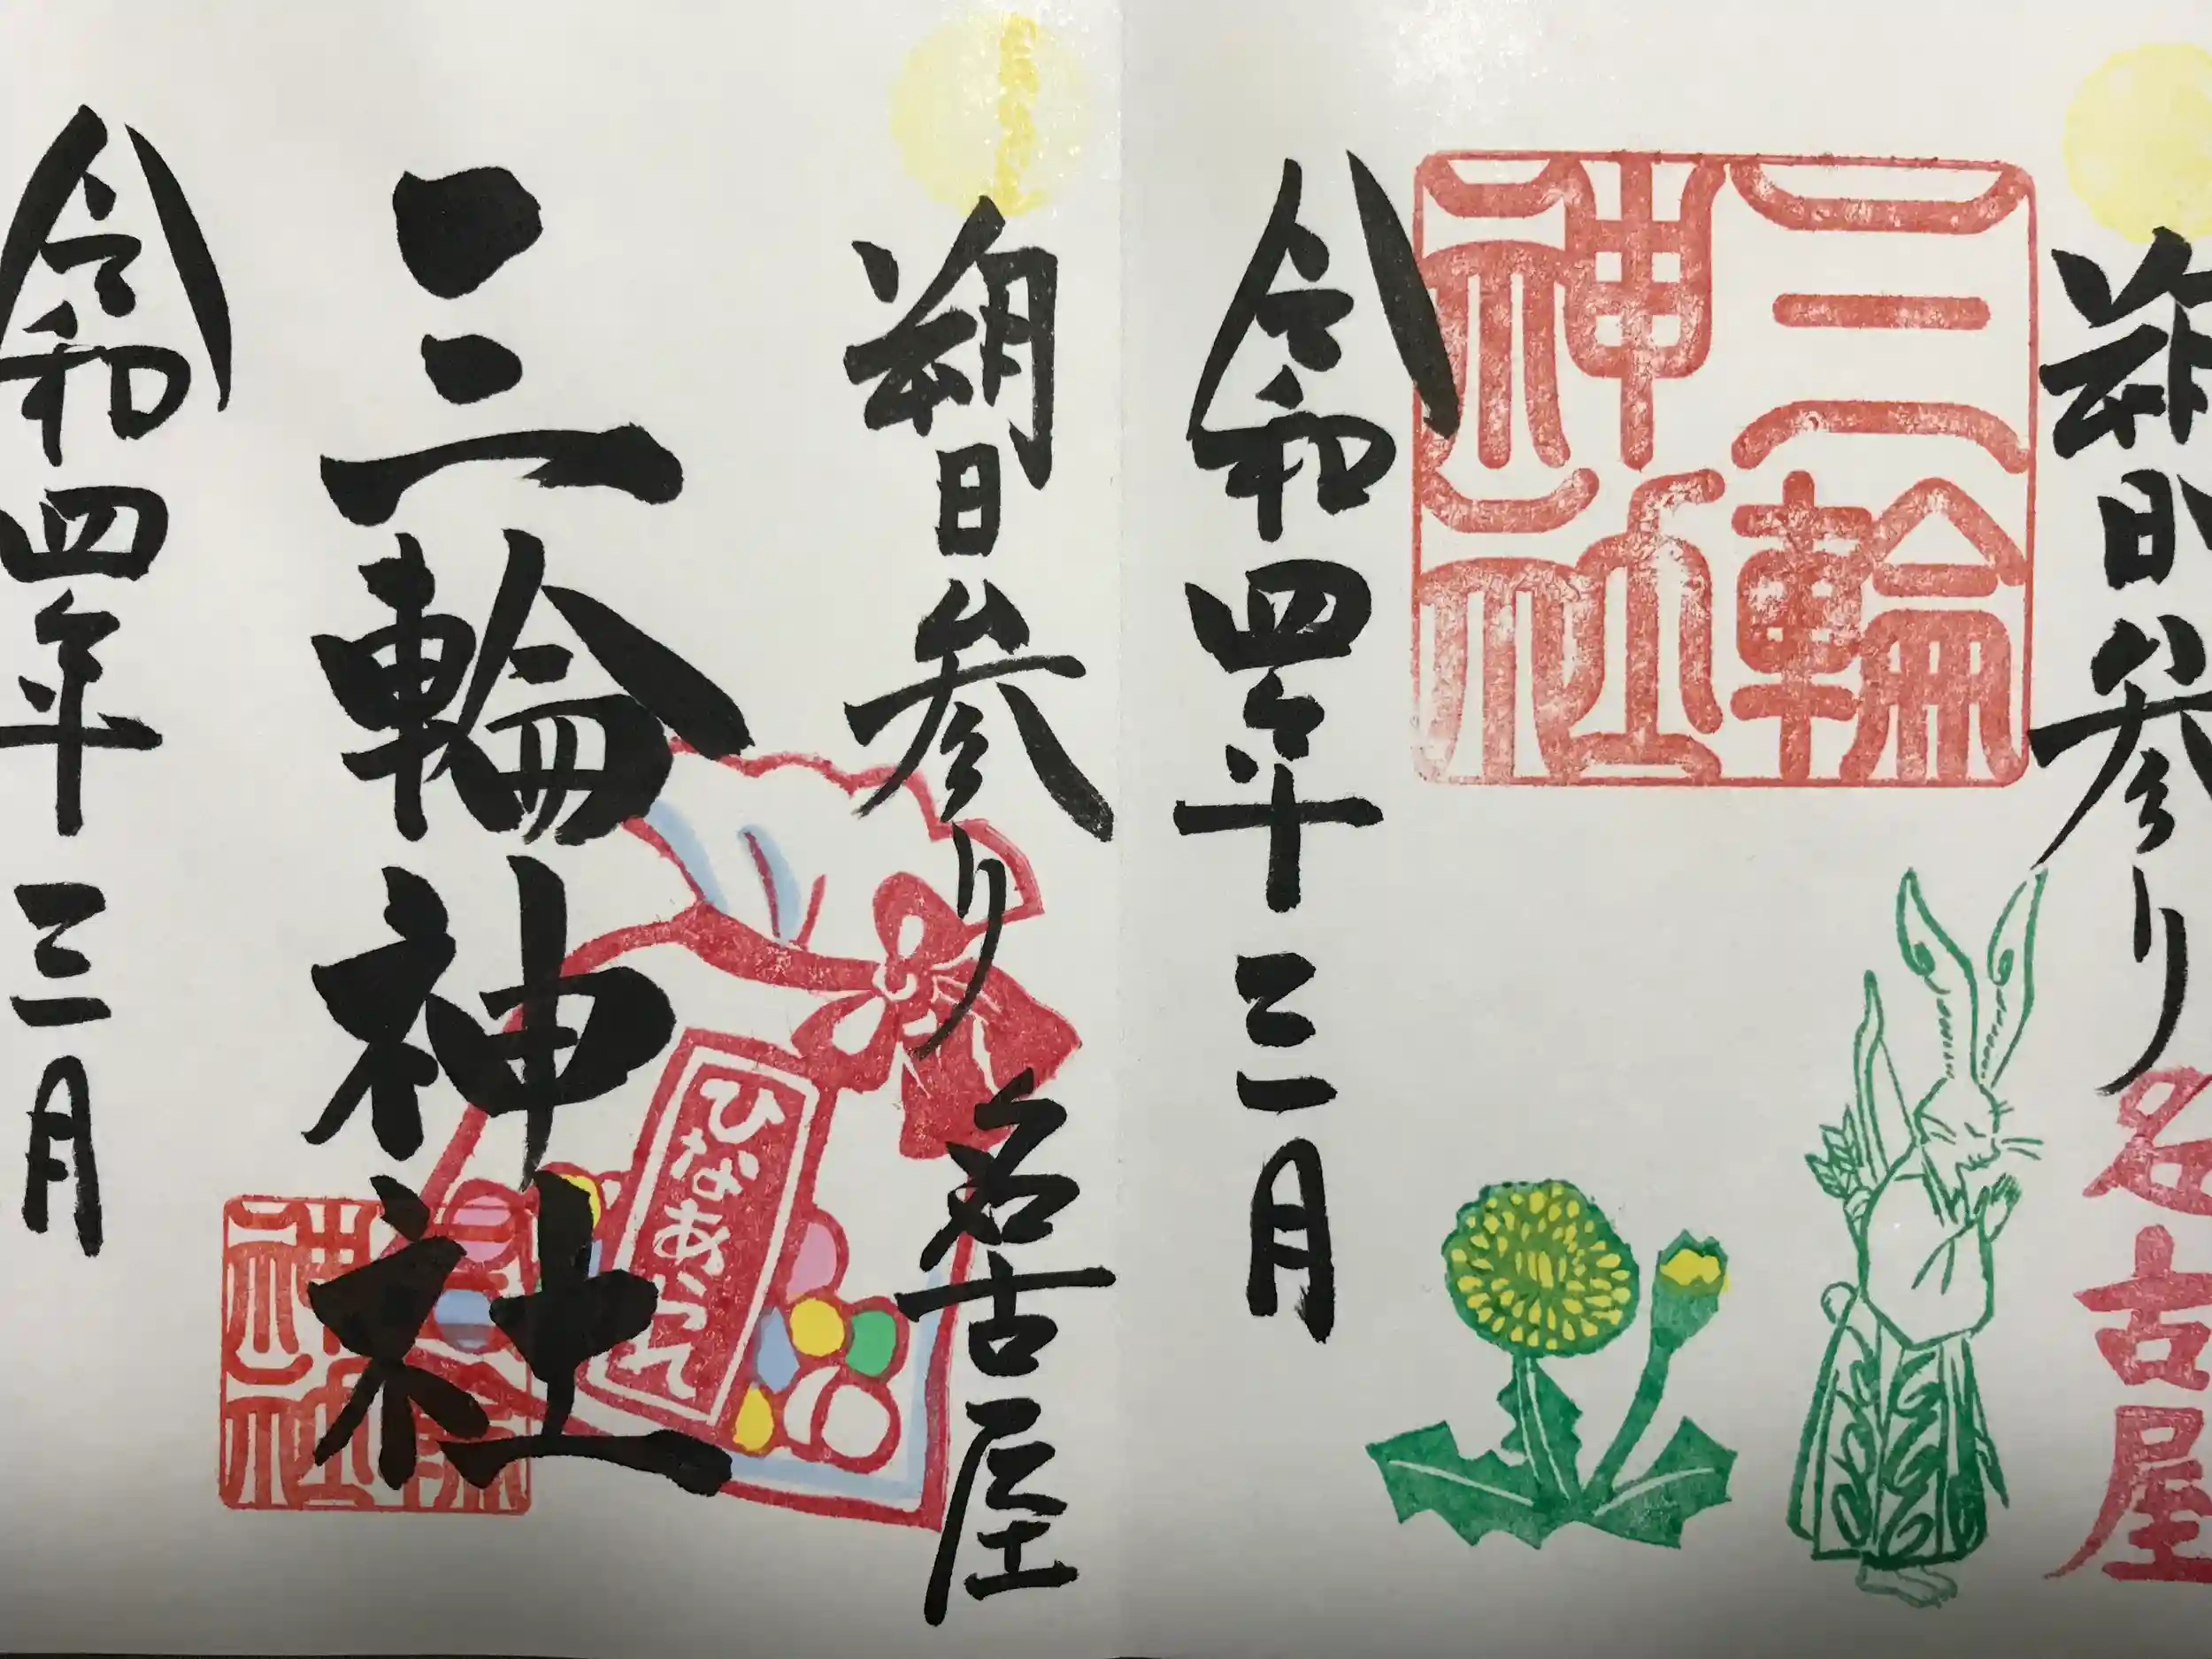 朔日参り
名古屋
三輪
神社
令和四年三月
朔日参り
名古屋
三輪神社
ひなあられ
三輪
神社
令和四年三月